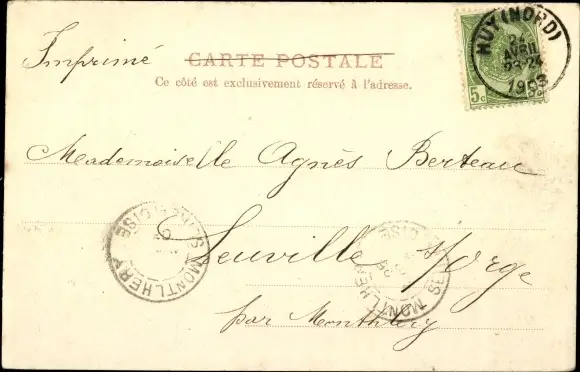 HUY (NORD)
24
AVRIL
23-24
1903
5c
Imprimé
CARTE POSTALE
Ce côté est exclusivement réservé à l'adresse.
Mademoiselle Agnès Berteau
Leuville s/Orge
par Monthléry
MONTLHERY
S. ET OISE
MONTLHERY
OISE